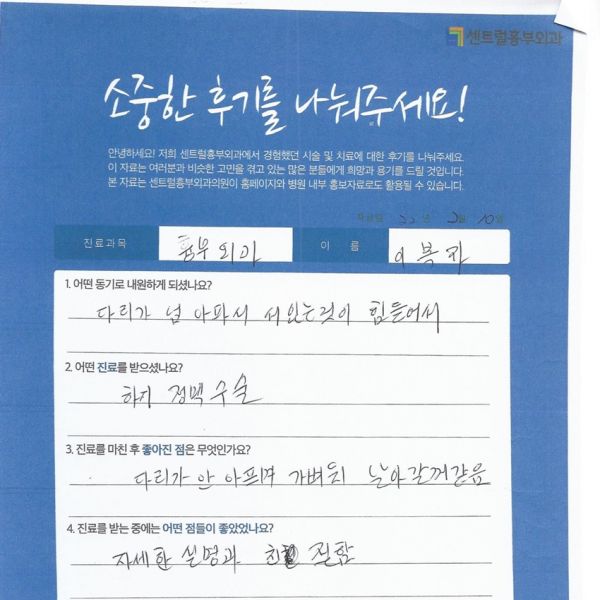 센트럴흉부외과
소중한 후기를 나눠주세요!
안녕하세요! 저희 센트럴흉부외과에서 경험했던 시술 및 치료에 대한 후기를 나눠주세요.
이 자료는 여러분과 비슷한 고민을 겪고 있는 많은 분들에게 희망과 용기를 드릴 것입니다.
본 자료는 센트럴흉부외과의원이 홈페이지와 병원 내부 홍보자료로도 활용될 수 있습니다.
년 월 10일
진료과목 흉부외과 이 름 이복자
1. 어떤 동기로 내원하게 되셨나요?
다리가 넘 아파서 서있는것이 힘들어서
2. 어떤 진료를 받으셨나요?
하지 정맥수술
3. 진료를 마친 후 좋아진 점은 무엇인가요?
다리가 안 아프며 날아갈꺼같음
4. 진료를 받는 중에는 어떤 점들이 좋았었나요?
자세한 설명과 친절함